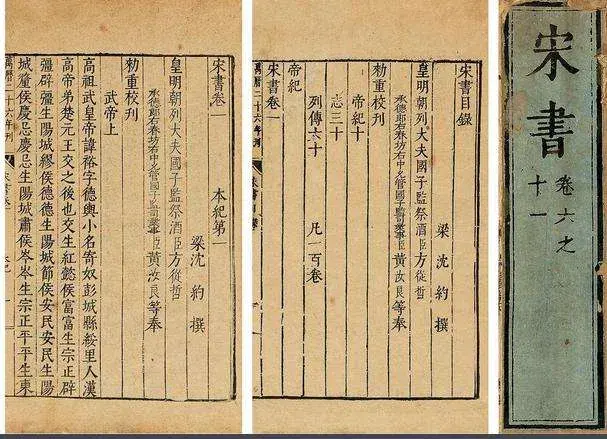 宋書
卷六之
十一
宋書目錄
梁沈約撰
皇明朝列大夫國子監祭酒臣方從哲
承德郎右春坊右中允管國子監司業事臣黃汝良等奉
勅重校刊
帝紀十
志三十
列傳六十
凡一百卷
帝紀
宋書卷一
萬曆二十六年刊
宋書卷一
本紀第一
梁沈約撰
皇明朝列大夫國子監祭酒臣方從哲
承德郎右春坊右中允管國子監司業事臣黃汝良等奉
勅重校刊
武帝上
高祖武皇帝諱裕字德輿小名寄奴彭城縣綏里人漢
高帝弟楚元王交之後也交生紅懿侯富富生宗正辟
彊辟彊生陽城繆侯德德生陽城節侯安民安民生陽
城釐侯慶忌慶忌生陽城肅侯岑岑生宗正平平生東
萬曆二十六年刊